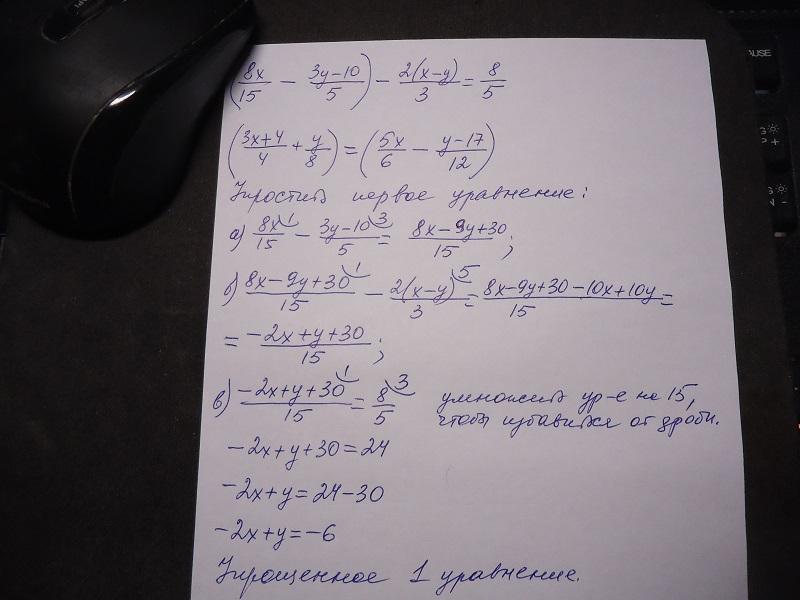 (8x/15 − 3y−10/5) − 2(x−y)/3 = 8/5
(3x+4/4 + y/8) = (5x/6 − y−17/12)
Упростить первое уравнение:
а) 8x 1/15 − 3y−10 3/5 = 8x−9y+30/15;
б) 8x−9y+30 1/15 − 2(x−y) 5/3 = 8x−9y+30−10x+10y/15 =
= −2x+y+30/15;
в) −2x+y+30 1/15 = 8 3/5 умножить ур-е на 15,
чтобы избавиться от дроби.
−2x+y+30=24
−2x+y=24−30
−2x+y=−6
Упрощенное 1 уравнение.
AUSE